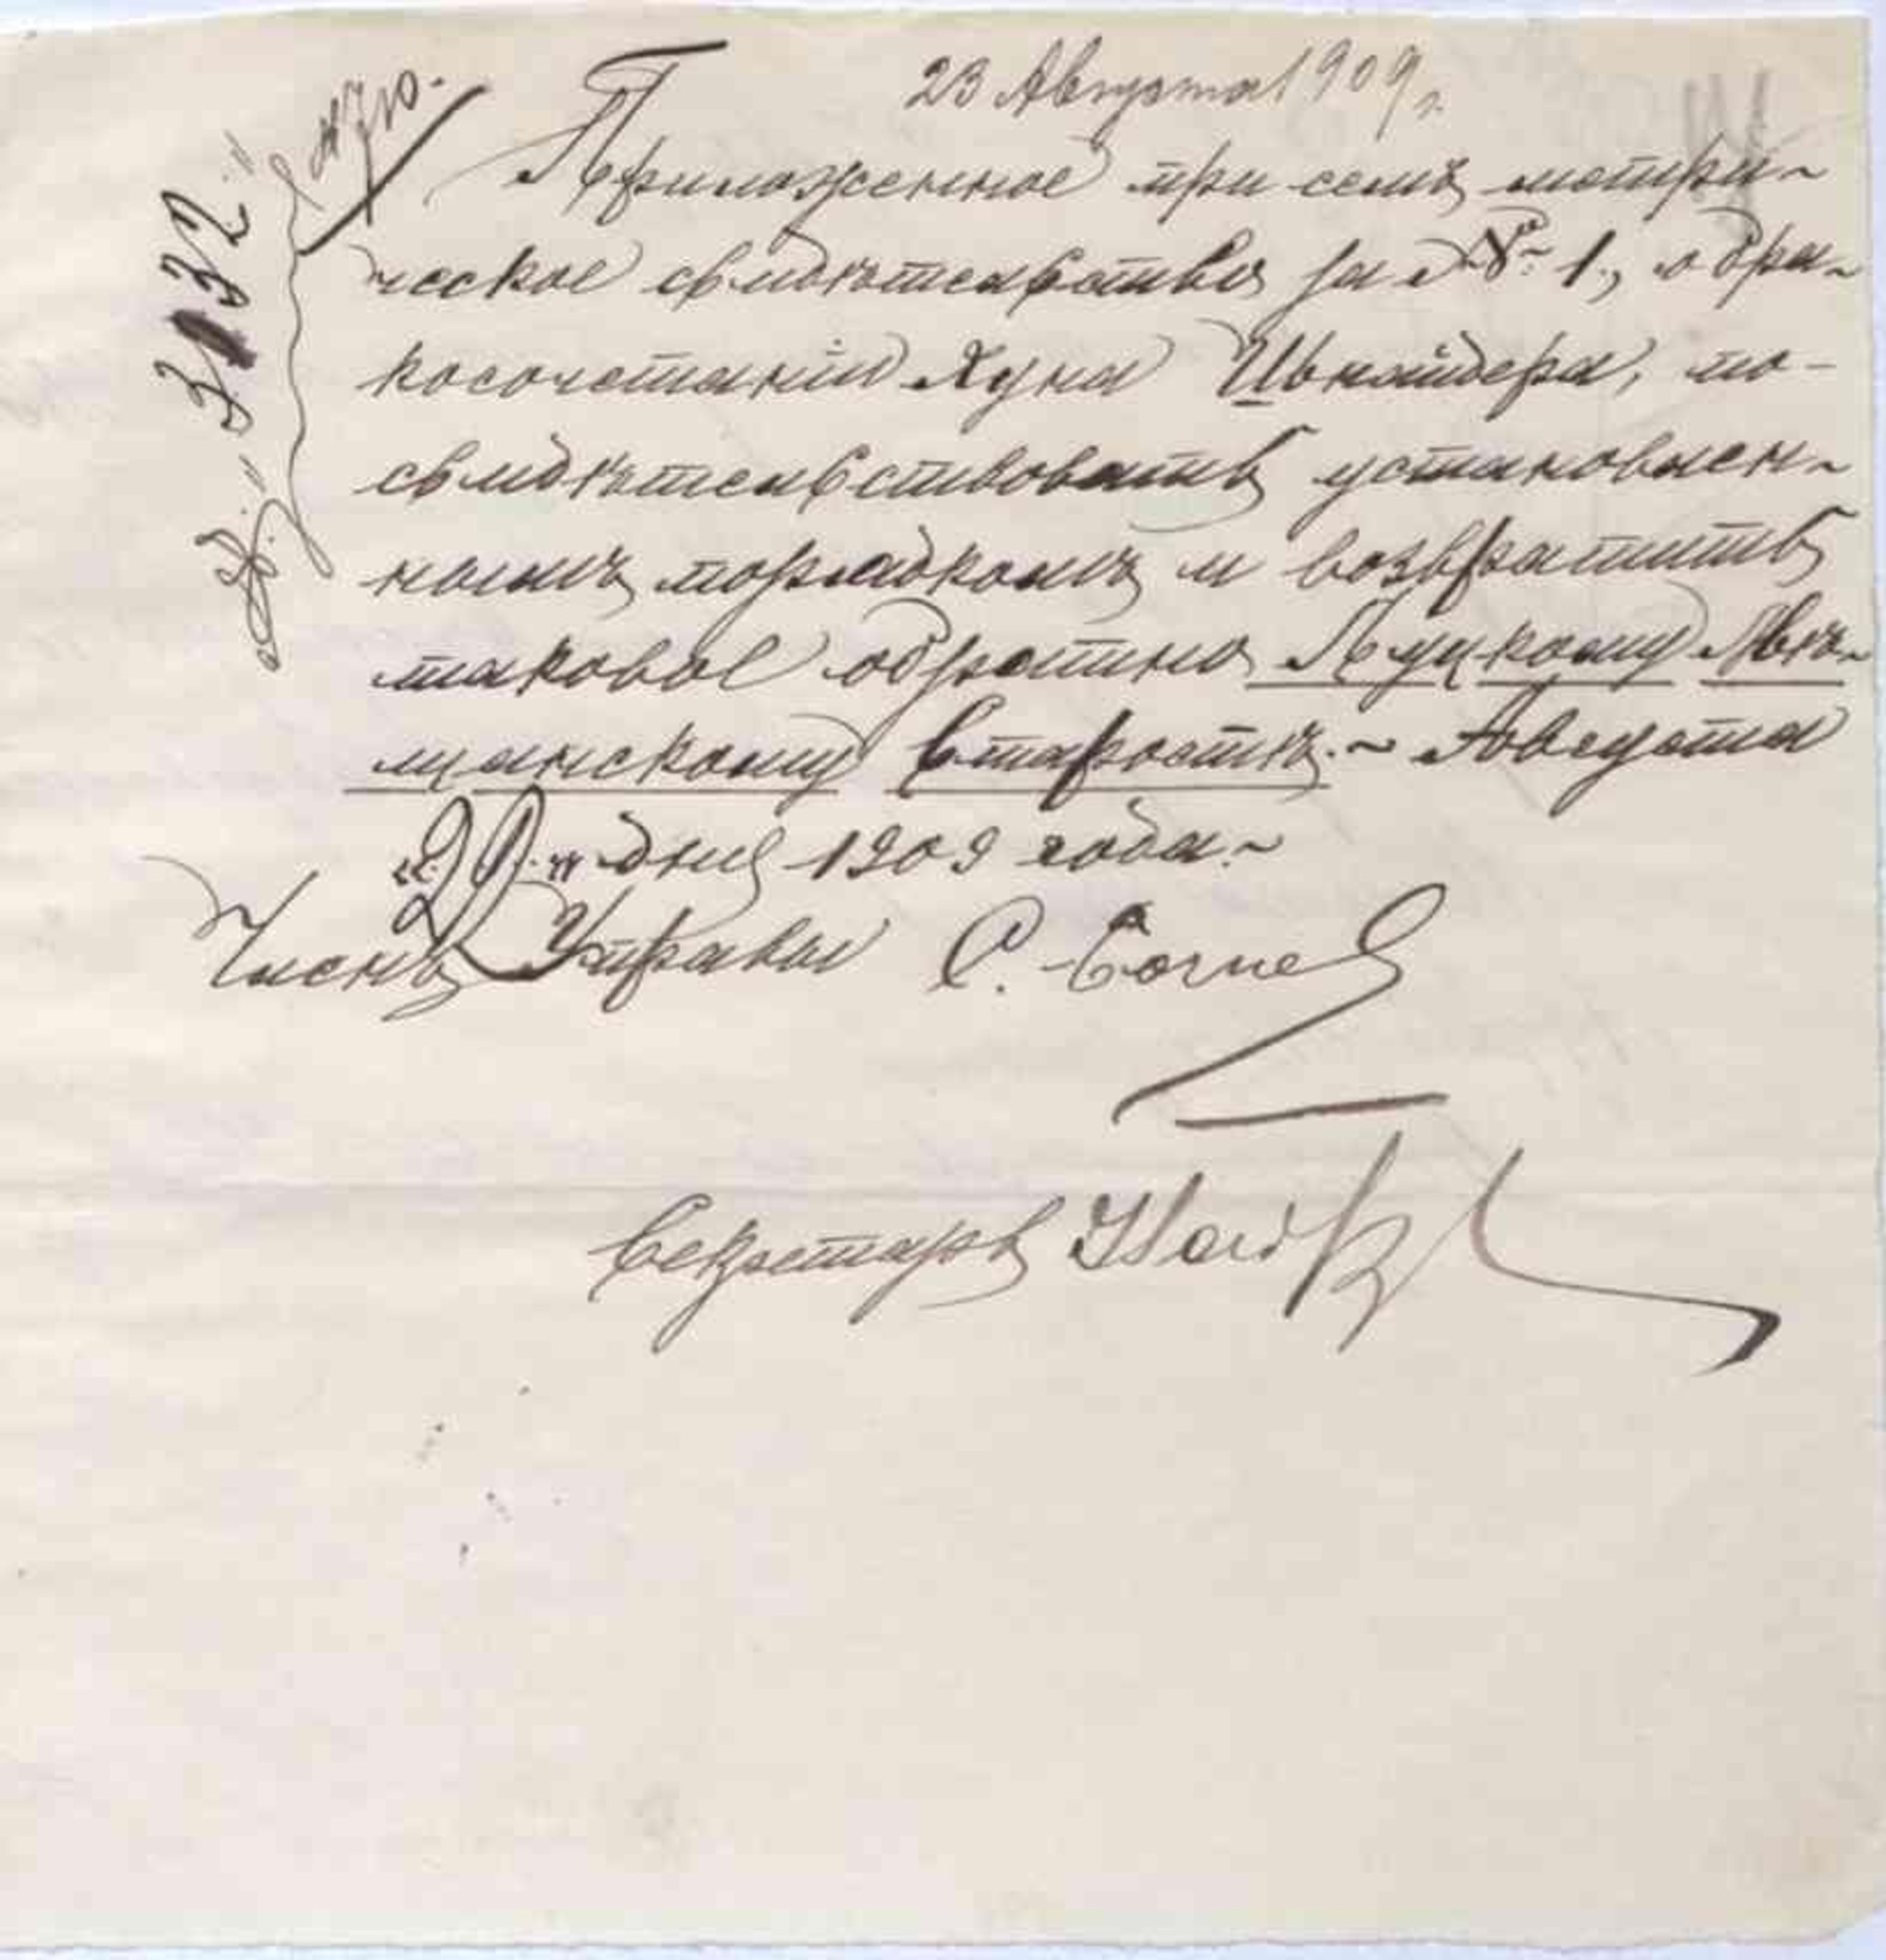 23 Августа 1909 г.
Приложенное при семъ метри-
ческое свидѣтельство за № 1, о бра-
косочетаніи Хуна Шнайдера, по-
свидѣтельствовать установлен-
нымъ порядкомъ и возвратить
таковое обратно Луцкому Мѣ-
щанскому Старостѣ. Августа
"20" дня 1909 года.
Членъ Управы С.
Секретарь
3132